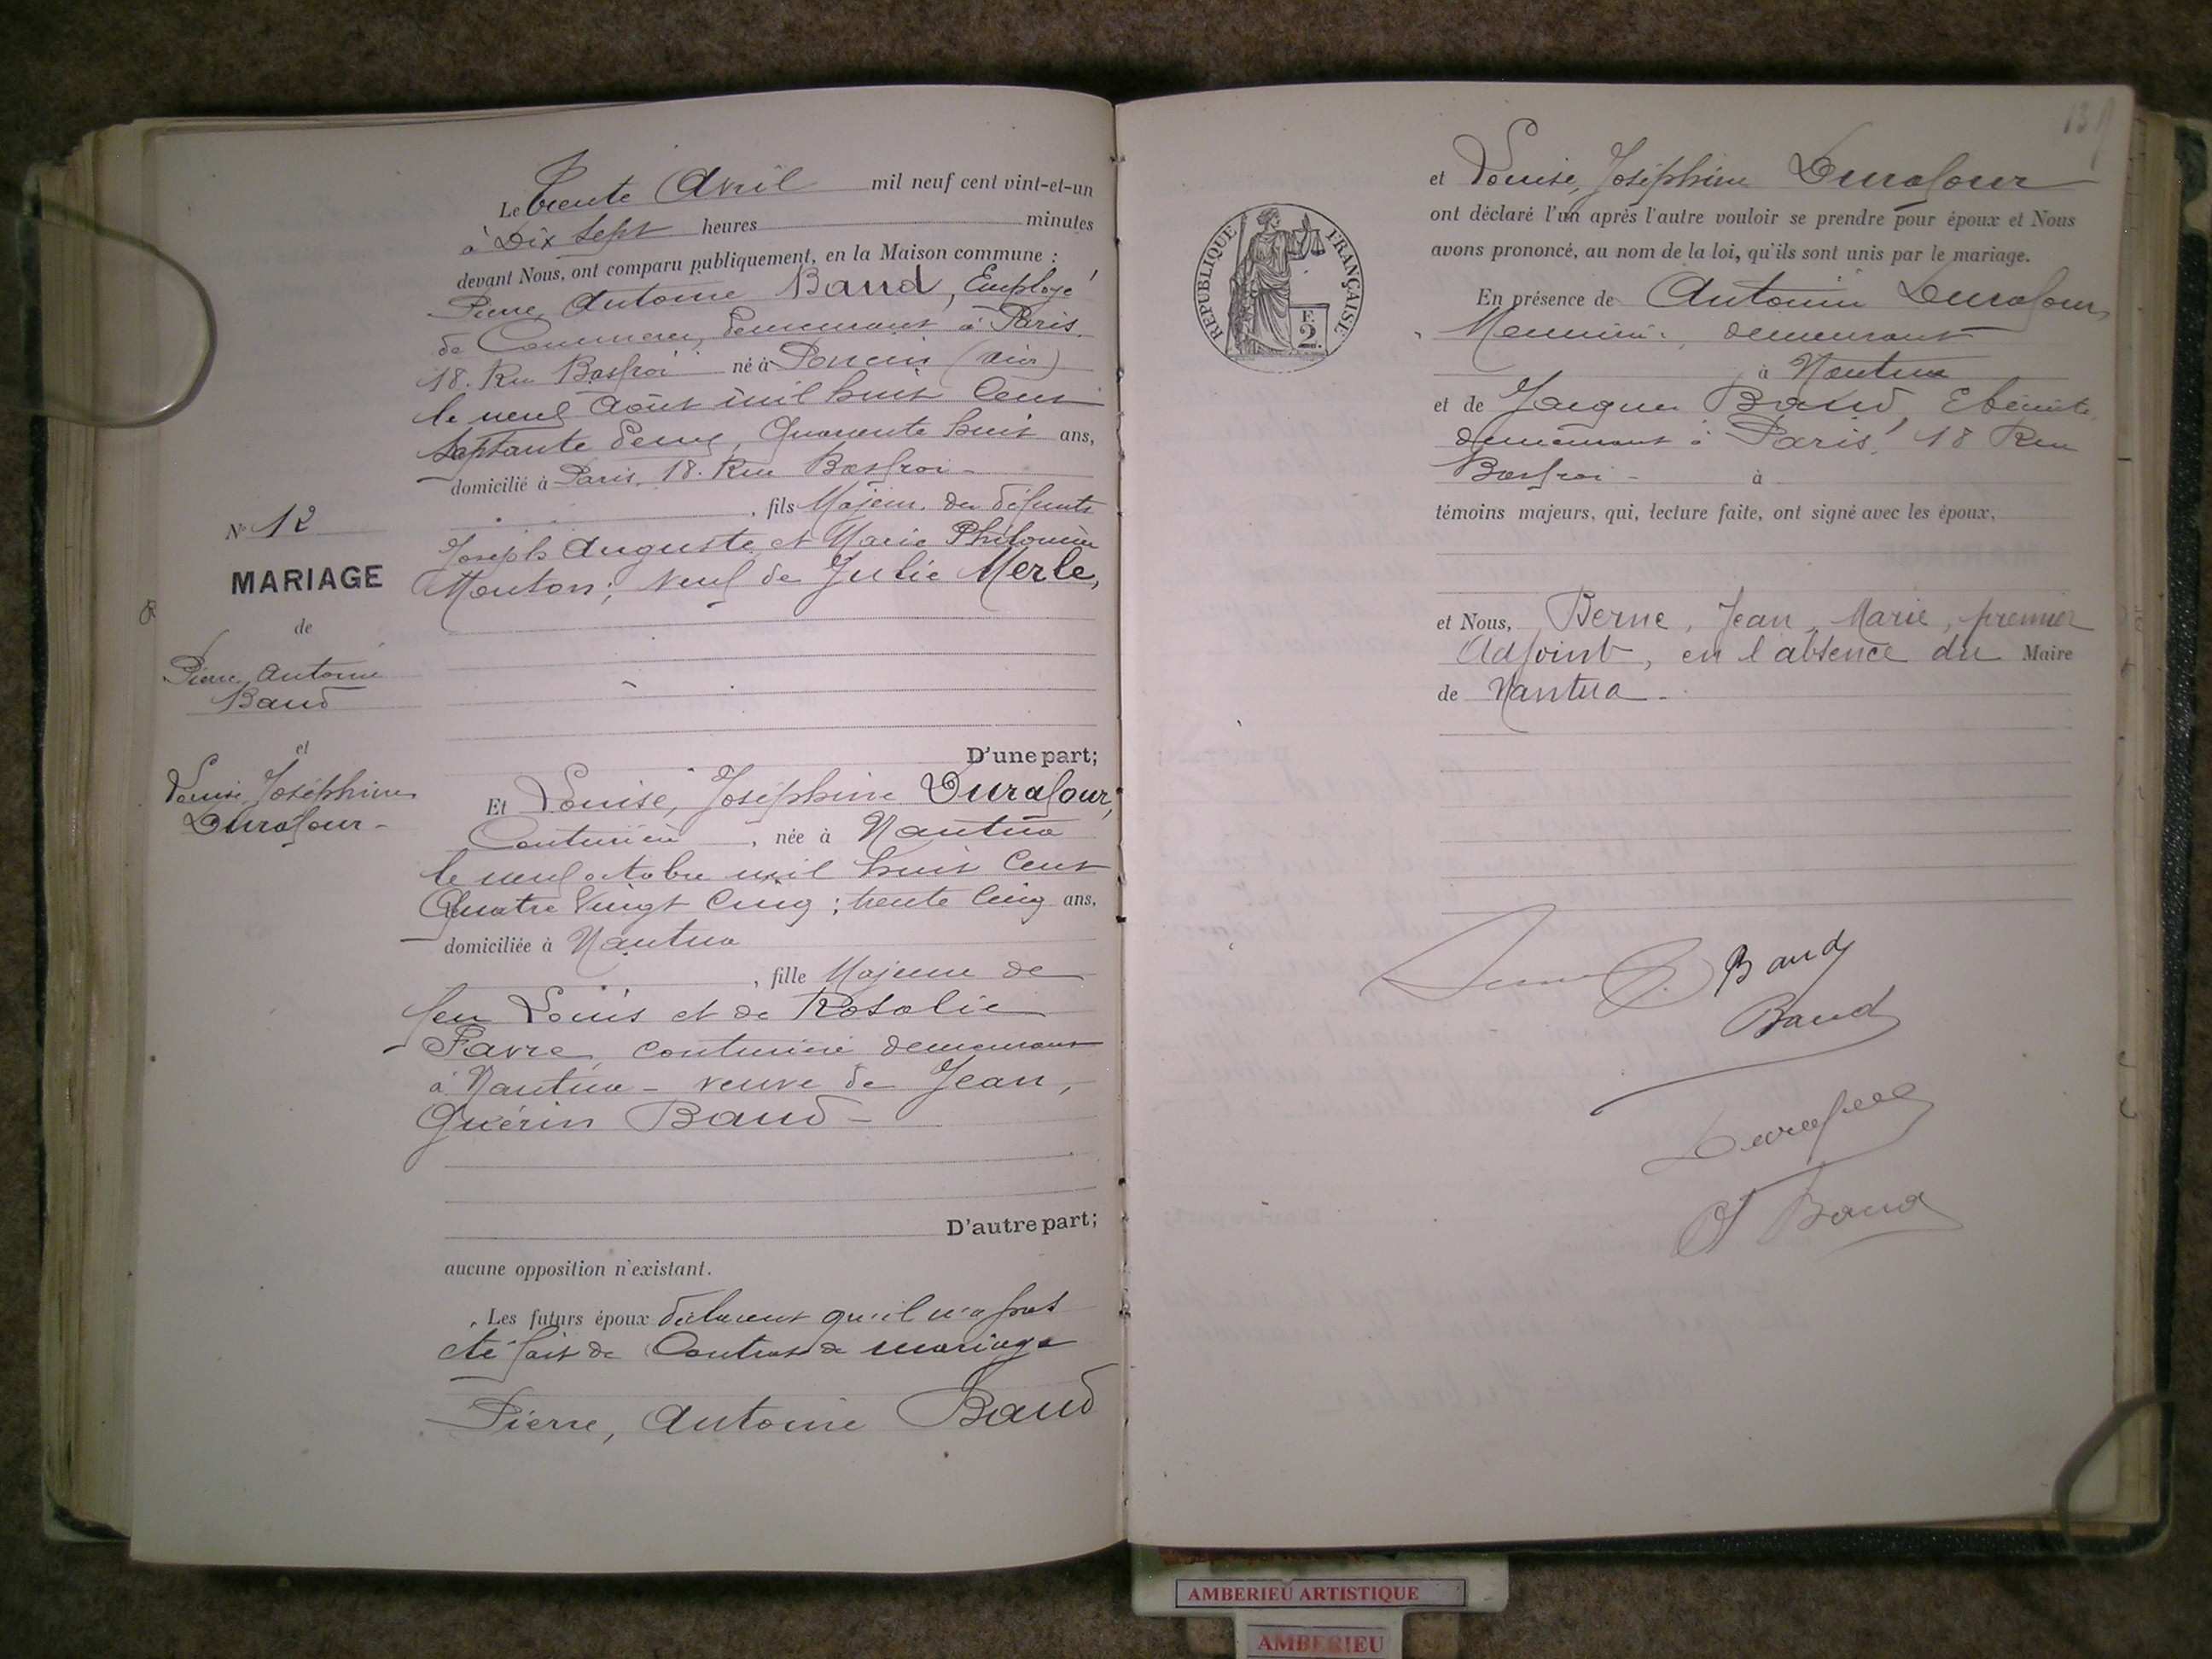 Le trente Avril mil neuf cent vint-et-un
à Dix sept heures minutes
devant Nous, ont comparu publiquement, en la Maison commune :
Pierre, Antoine Baud, Employé
de Commerce, demeurant à Paris.
18. Rue Basfroi né à Poncin (Ain)
le neuf Août mil huit cent
septante deux, Quarante huit ans,
domicilié à Paris, 18. Rue Basfroi -
, fils Majeur des défunts
Joseph Auguste et Marie Philomène
Mouton; veuf de Julie Merle,
N° 12
MARIAGE
de
Pierre, Antoine
Baud
et
Louise, Joséphine
Durafour -
D'une part;
Et Louise, Joséphine Durafour,
Couturière, née à Nantua
le neuf octobre mil huit cent
Quatre Vingt Cinq ; trente cinq ans,
domiciliée à Nantua
, fille Majeure de
feu Louis et de Rosalie
Favre, couturière demeurant
à Nantua - veuve de Jean,
Guérin Baud -
D'autre part;
aucune opposition n'existant.
Les futurs époux déclarent qu'il n'a pas
été fait de Contrat de mariage
Pierre, Antoine Baud
RÉPUBLIQUE FRANÇAISE
F.
2
et Louise, Joséphine Durafour
ont déclaré l'un après l'autre vouloir se prendre pour époux et Nous
avons prononcé, au nom de la loi, qu'ils sont unis par le mariage.
En présence de Antonin Durafour,
demeurant
à Nantua
et de Jacques Baud, Ebéniste,
demeurant à Paris, 18 Rue
Basfroi - à
témoins majeurs, qui, lecture faite, ont signé avec les époux,
et Nous, Berne, Jean, Marie, premier
Adjoint, en l'absence du Maire
de Nantua -
Baud
Baud
Baud
AMBERIEU ARTISTIQUE
AMBERIEU